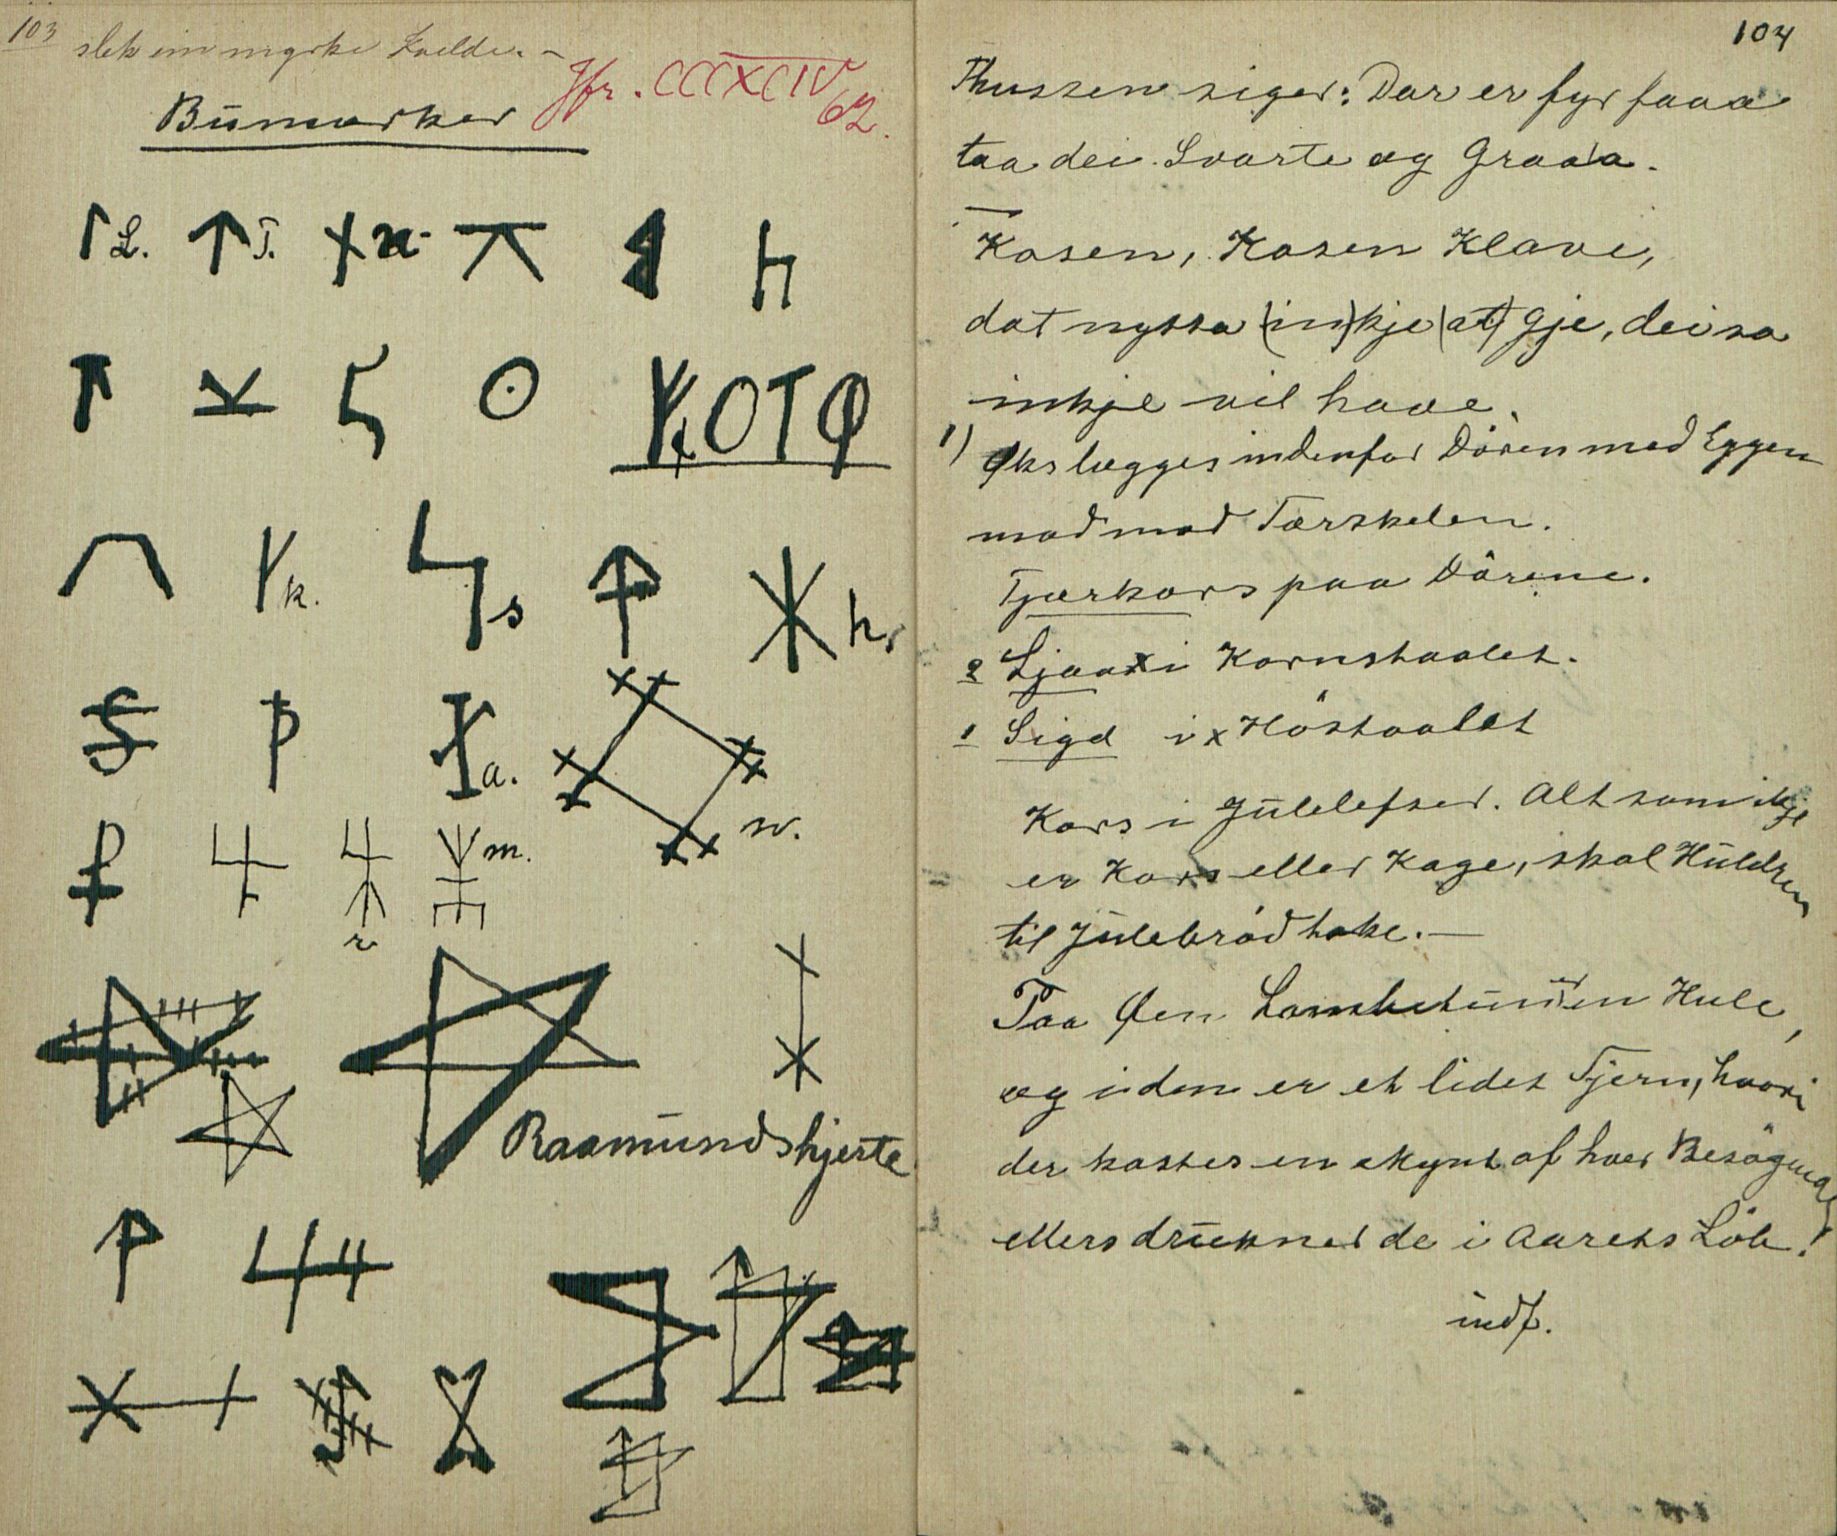 103
slek ein myrke Kvelde. -
Jfr. CCCXCIV
62.
Bumerker
L.
T.
n
KOTO
k.
s
h
a.
w.
m.
r
Raamundshjerte
104
Thussen siger: Dar er fyr faaa
taa dei Svarte og Graaa.
Kosen, Kosen Klave,
dat nyssa (in)kje (at) gje, dei sa
inkje vil have.
1) Øks lægges indenfor Dören med Eggen
mod mod Tærskelen.
Tjærkors paa Dörene.
2 Ljaa x i Kornstaalet.
1 Sigd i x Höstaalet
Kors i Julelefser. Alt som ikje
er Kors eller Kage, skal Huldren
til Julebröd hake. -
Paa Øen en Hule,
og i den er et lidet Tjern, hvori
der kastes en skynt af hver Besögende,
ellers drukner de i Aarets Löb!
indf.